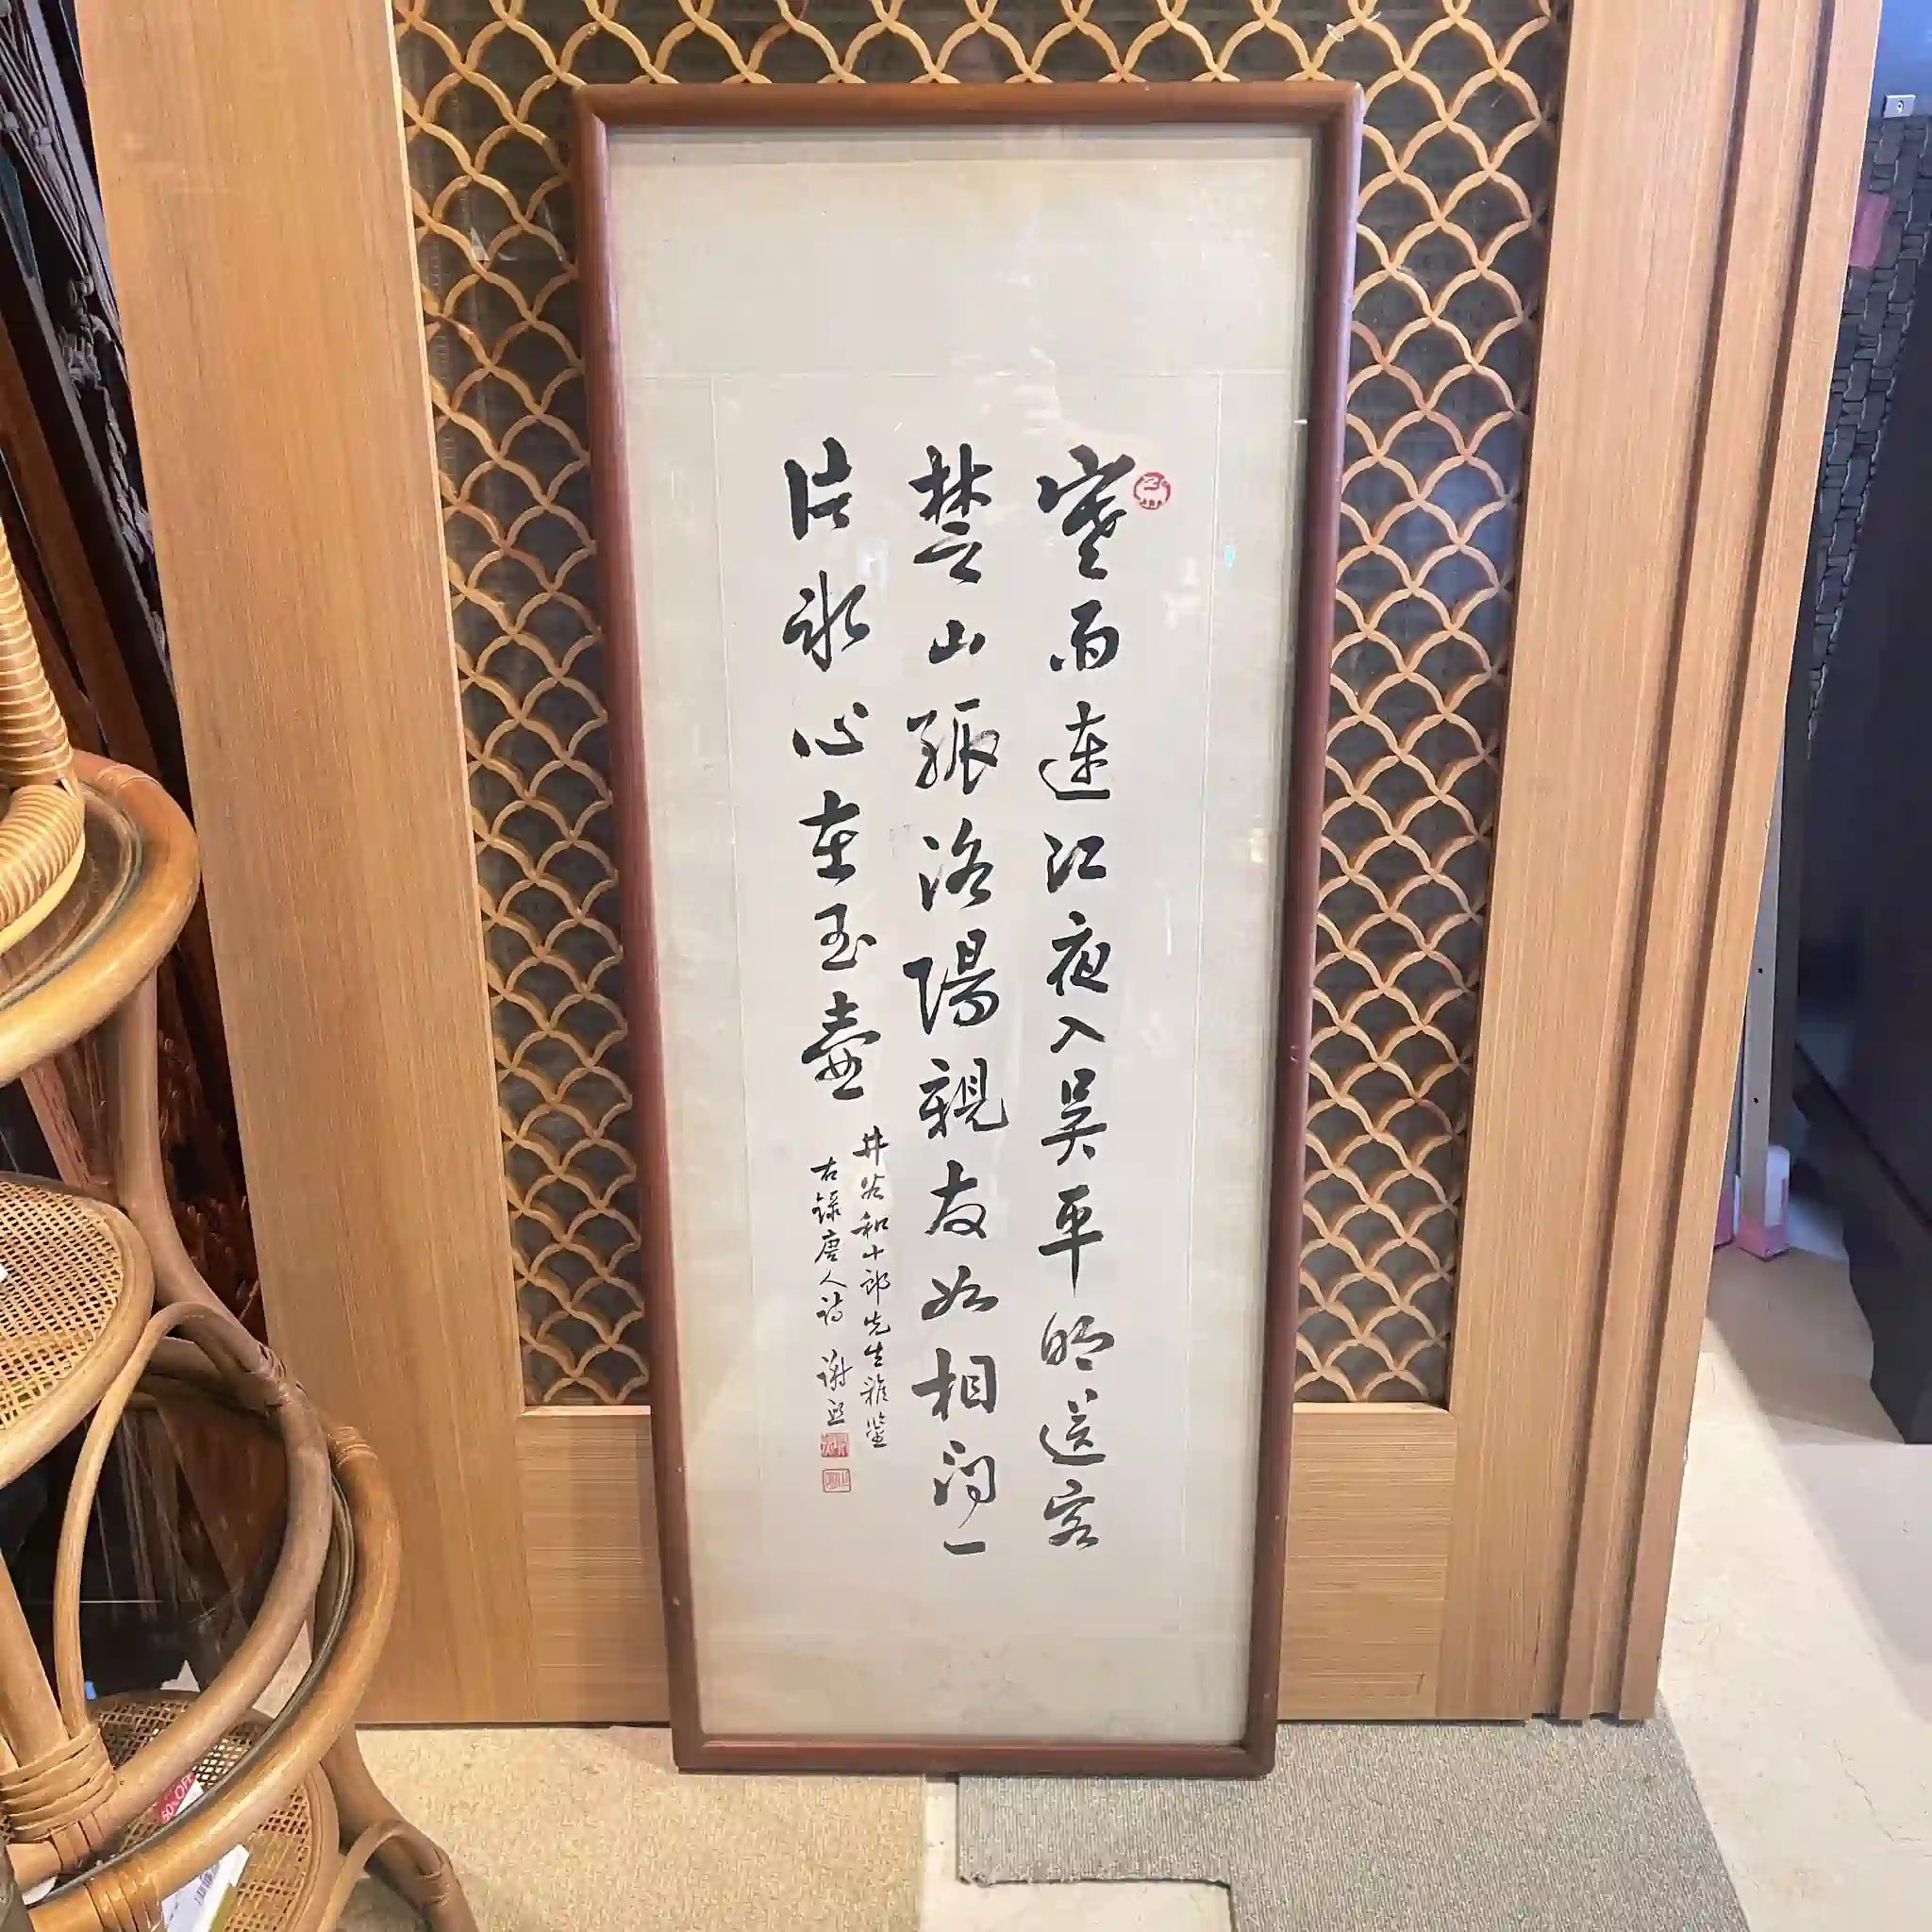 寒雨連江夜入吳平明送客
楚山孤洛陽親友如相問一
片冰心在玉壺
井谷和十郎先生雅鑒
右錄唐人詩 謝
50%OFF